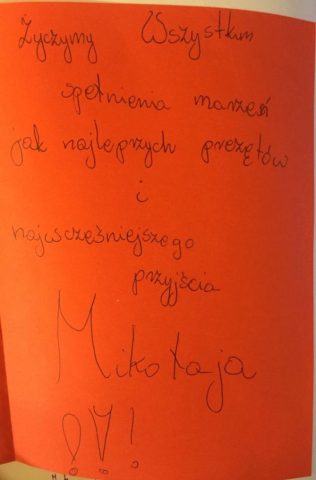 Życzymy Wszystkim
spełnienia marzeń
jak najleprzych prezętów
i
najwsczęśniejszego
przyjścia
Mikołaja
!!!